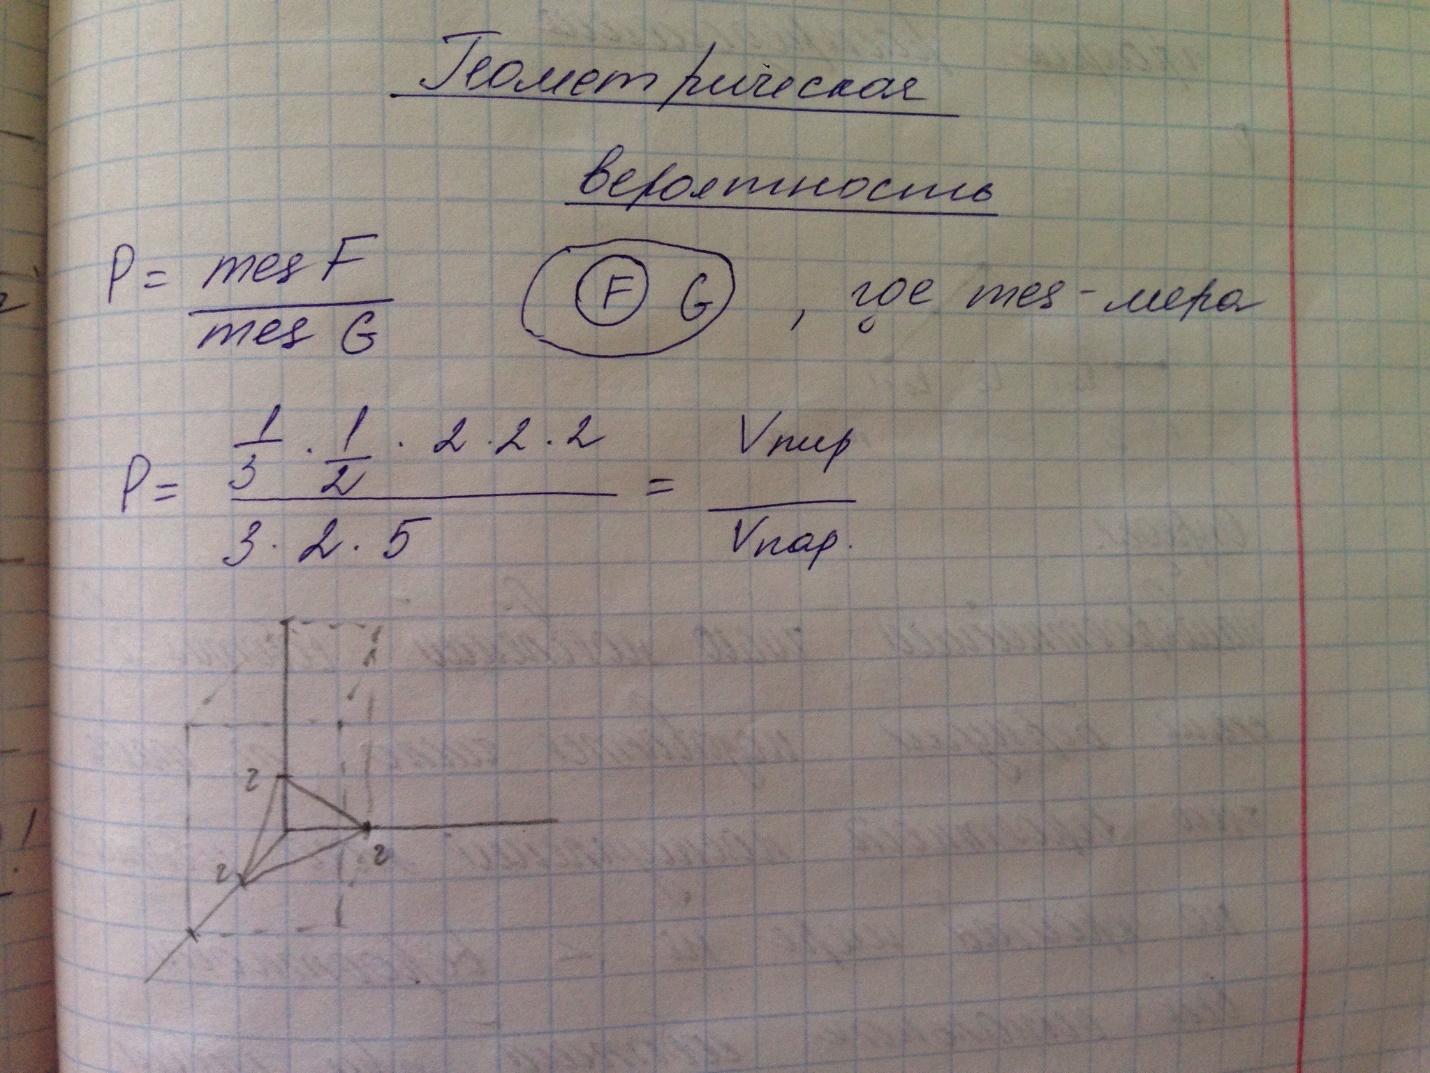 Геометрическая
вероятность
P = mes F / mes G F G , где mes - мера
P = (1/3 · 1/2 · 2 · 2 · 2) / (3 · 2 · 5) = Vпир / Vпар.
2
2
2